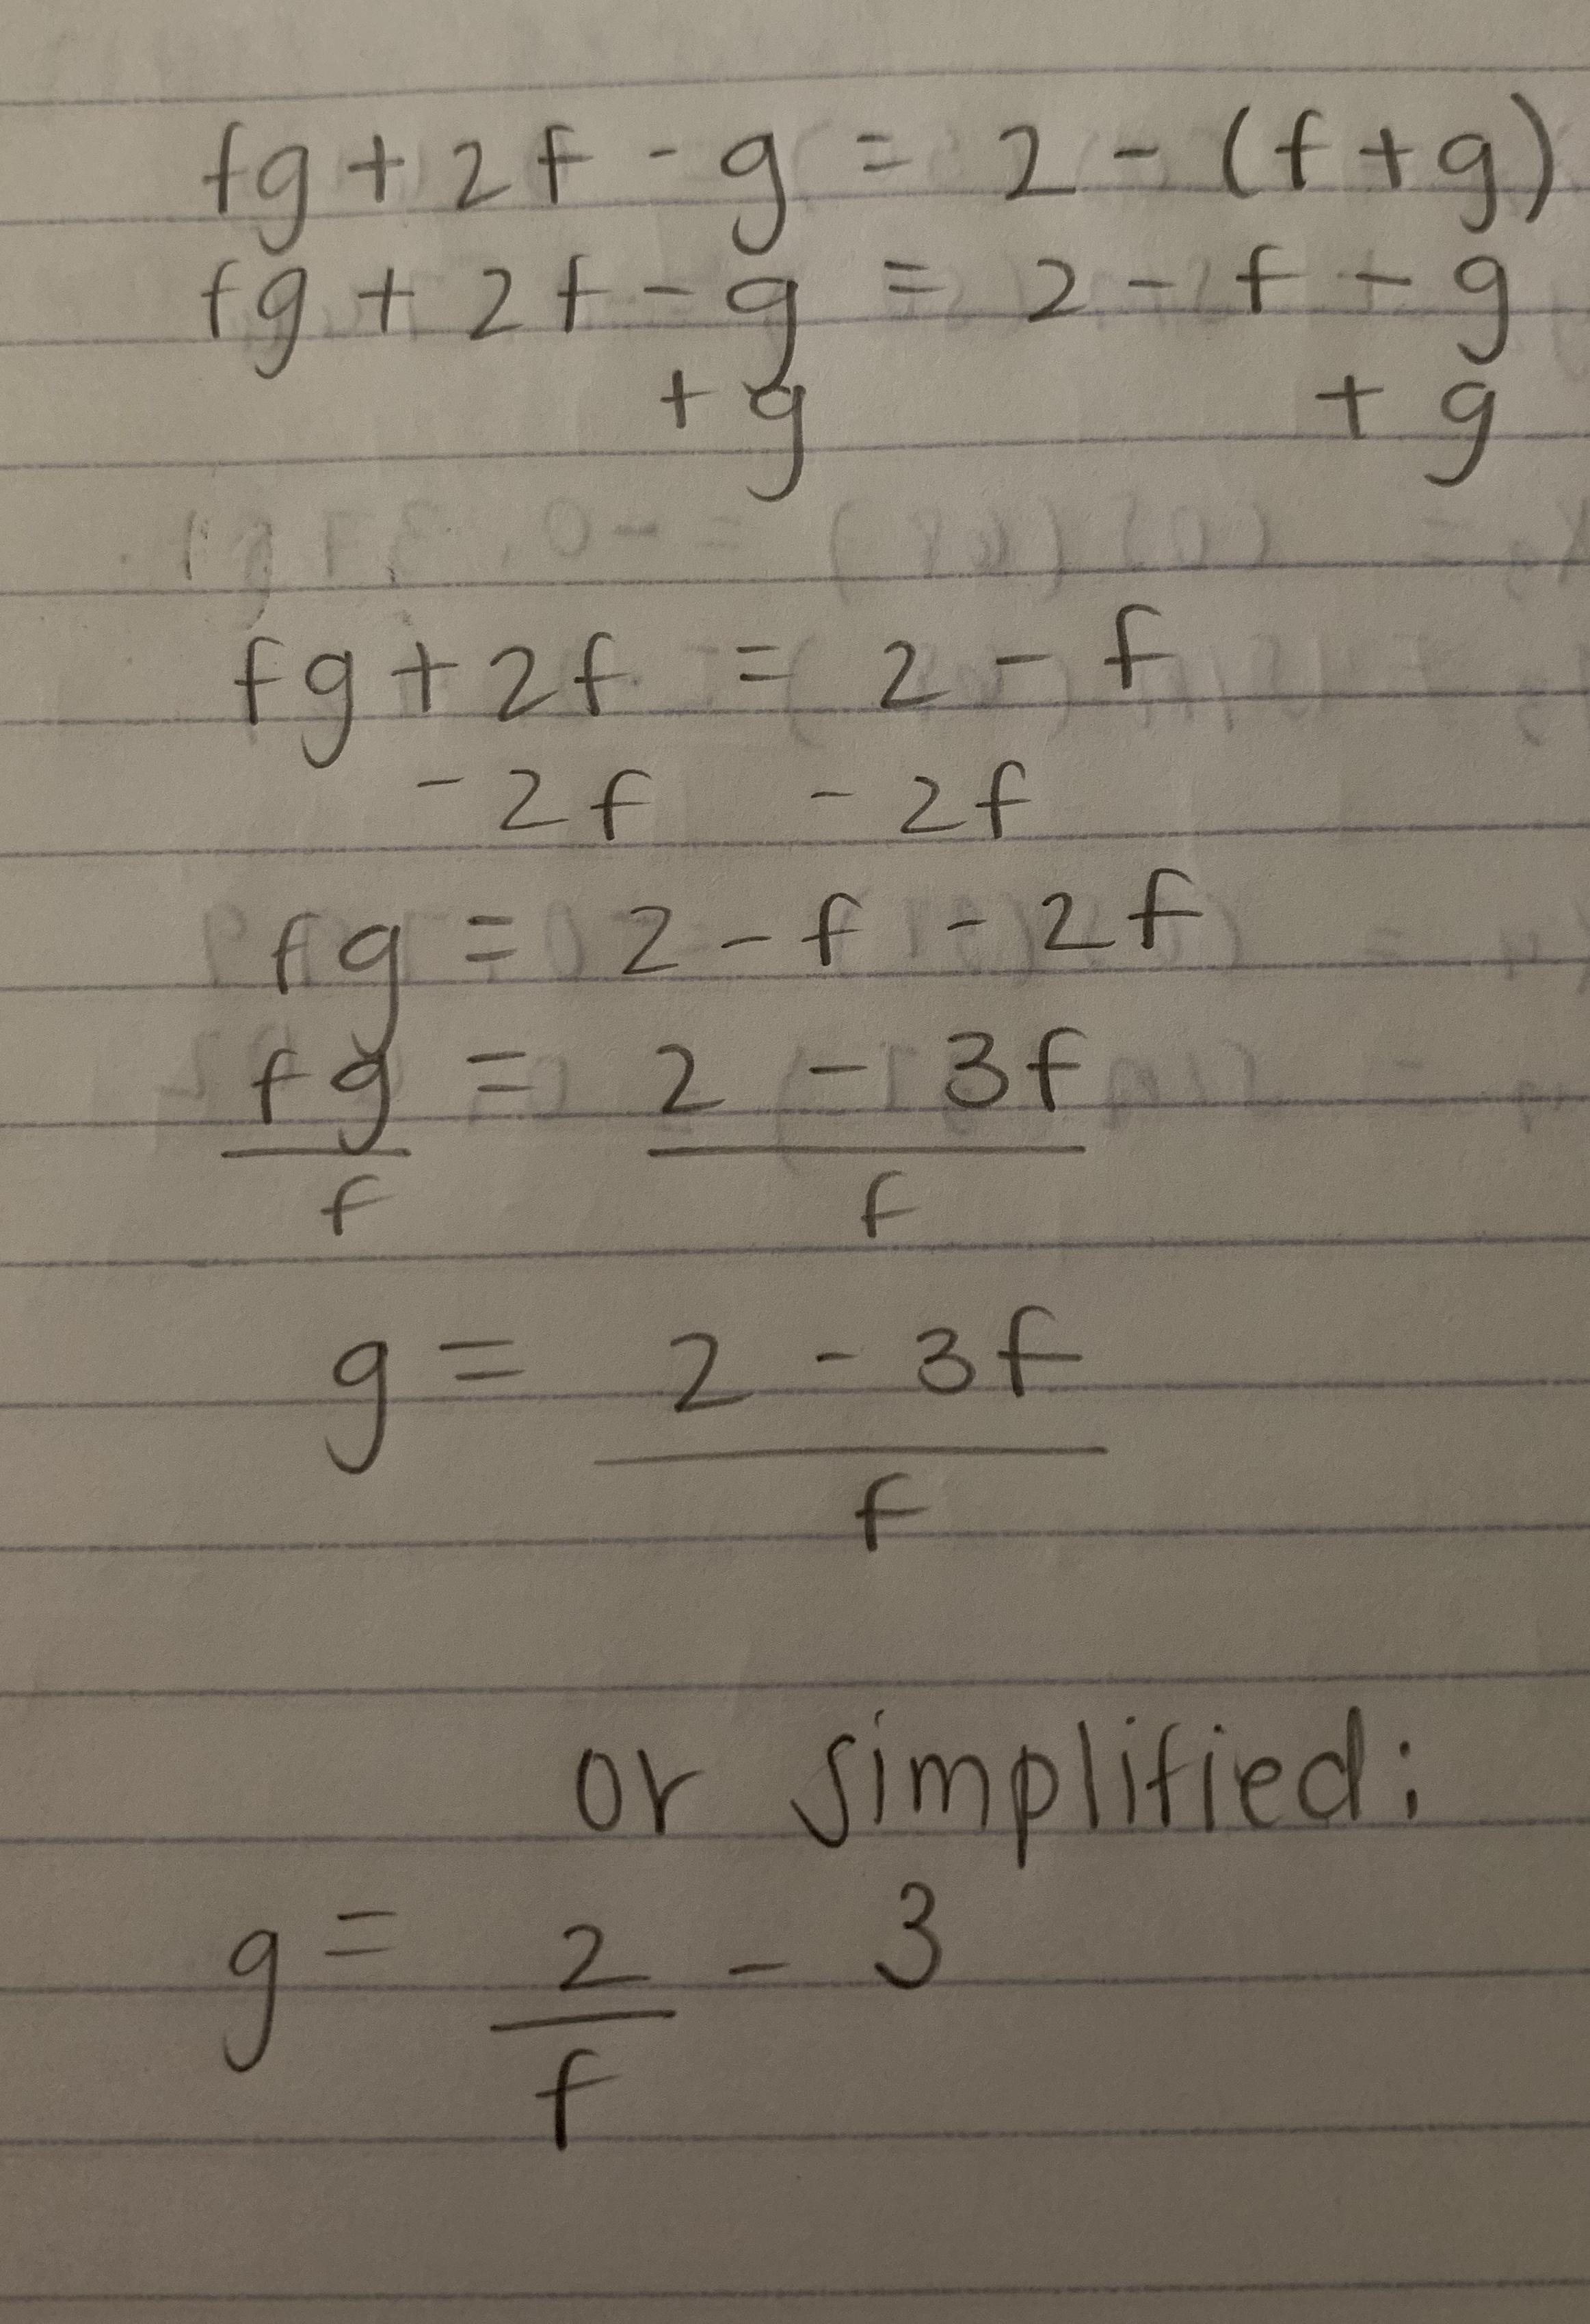 fg + 2f - g = 2 - (f + g)
fg + 2f - g = 2 - f - g
+ g + g
fg + 2f = 2 - f
- 2f - 2f
fg = 2 - f - 2f
fg = 2 - 3f
f f
g = 2 - 3f
f
or simplified:
g = 2 - 3
f